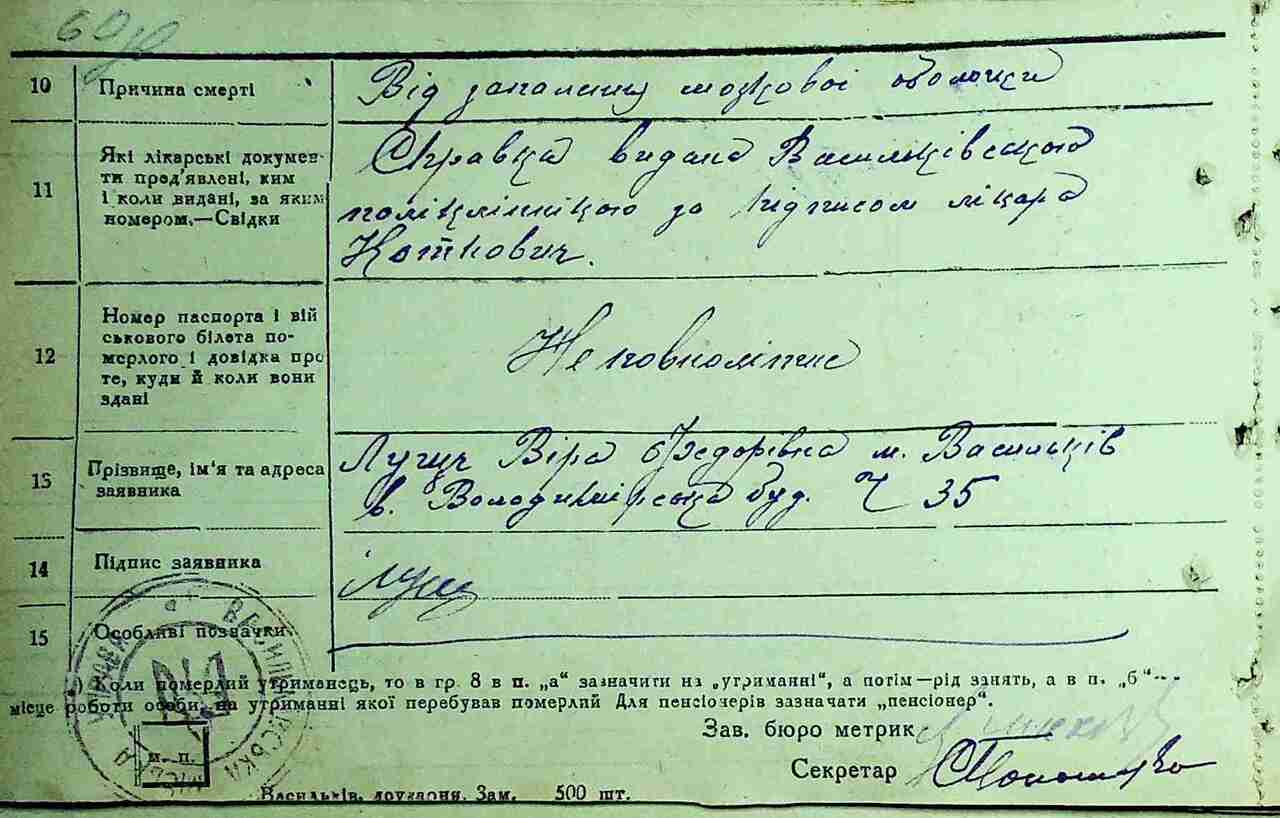 10 Причина смерті Від запалення мозкової оболочки
11 Які лікарські докумен-
ти пред'явлені, ким
і коли видані, за яким
номером.—Свідки
Справка видана Васильківською
поліклінікою за підписом лікара
Коткович.
12 Номер паспорта і вій
ськового білета по-
мерлого і довідка про
те, куди й коли вони
здані
Неповнолітнє
13 Прізвище, ім'я та адреса
заявника
Лущ Віра Федорівна м. Васильків
в. Володимірська буд. Ч 35
14 Підпис заявника
15 Особливі позначки
*) Коли померлий утриманець, то в гр. 8 в п. „а" зазначити на „утриманні", а потім—рід занять, а в п. „б"—
місце роботи особи, на утриманні якої перебував померлий Для пенсіонерів зазначати „пенсіонер".
Зав. бюро метрик
Секретар
м. п.
Васильків, друкарня. Зам. 500 шт.